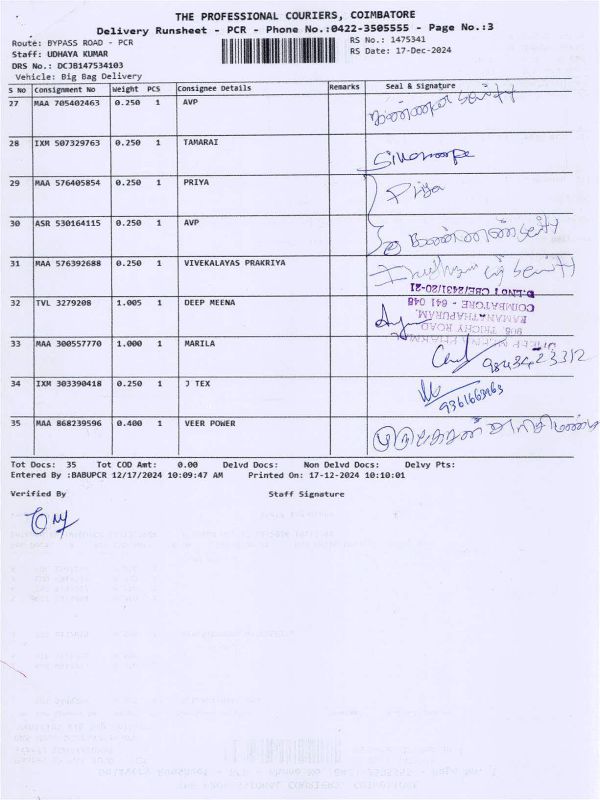 THE PROFESSIONAL COURIERS, COIMBATORE
Delivery Runsheet - PCR - Phone No.:0422-3505555 - Page No.:3
Route: BYPASS ROAD - PCR
RS No.: 1475341
Staff: UDHAYA KUMAR
RS Date: 17-Dec-2024
DRS No.: DCJB147534103
Vehicle: Big Bag Delivery
S No Consignment No Weight PCS Consignee Details Remarks Seal & Signature
27 MAA 705402463 0.250 1 AVP
28 IXM 507329763 0.250 1 TAMARAI
29 MAA 576405854 0.250 1 PRIYA Priya
30 ASR 530164115 0.250 1 AVP
31 MAA 576392688 0.250 1 VIVEKALAYAS PRAKRIYA
32 TVL 3279208 1.005 1 DEEP MEENA
D.LNO 1 CBE/2431/20-21
COIMBATORE - 641 048
RAMANATHAPURAM,
908, TRICHY ROAD
33 MAA 300557770 1.000 1 MARILA
34 IXM 303390418 0.250 1 J TEX
35 MAA 868239596 0.400 1 VEER POWER
Tot Docs: 35 Tot COD Amt: 0.00 Delvd Docs: Non Delvd Docs: Delvy Pts:
Entered By :BABUPCR 12/17/2024 10:09:47 AM Printed On: 17-12-2024 10:10:01
Verified By Staff Signature